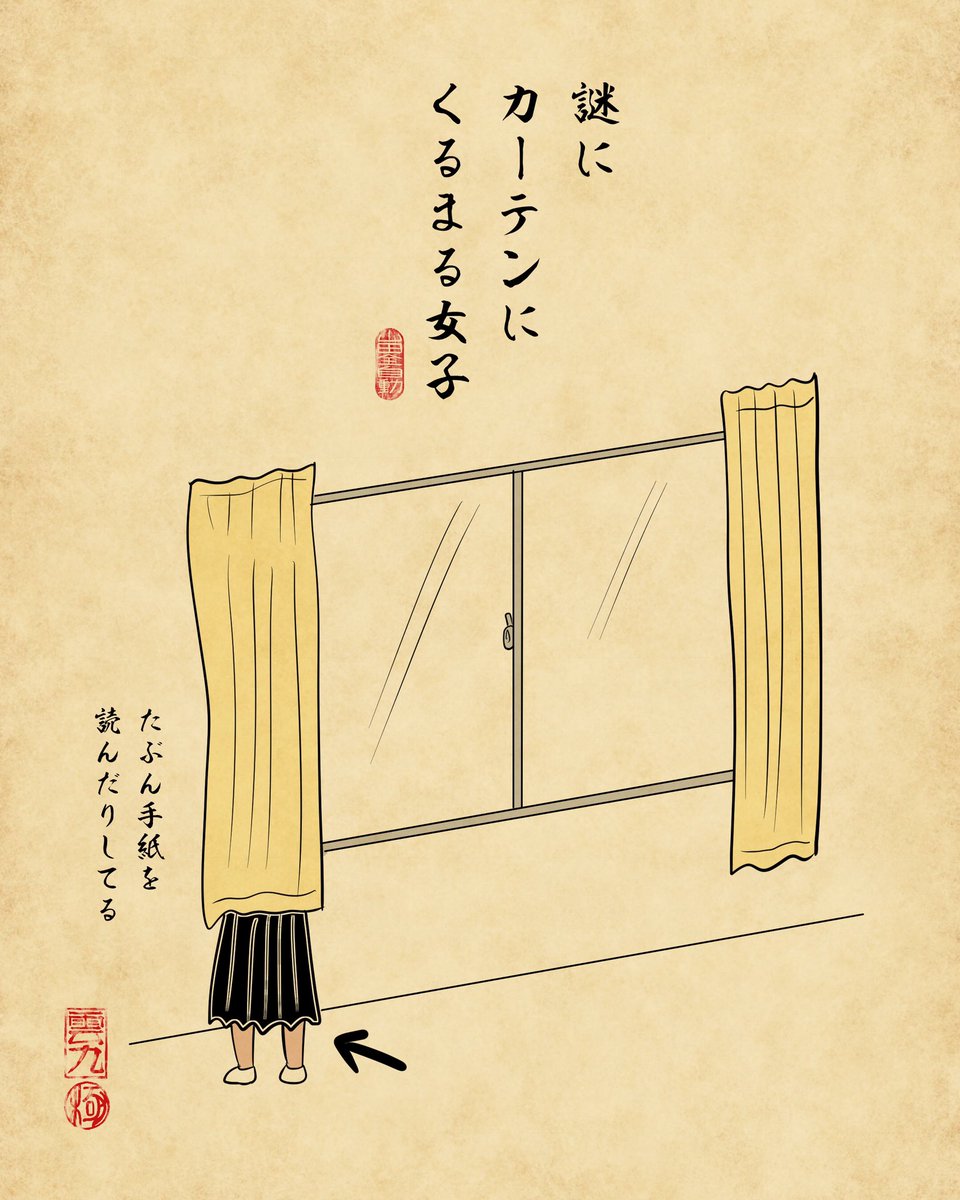 謎に
カーテンに
くるまる女子
たぶん手紙を
読んだりしてる